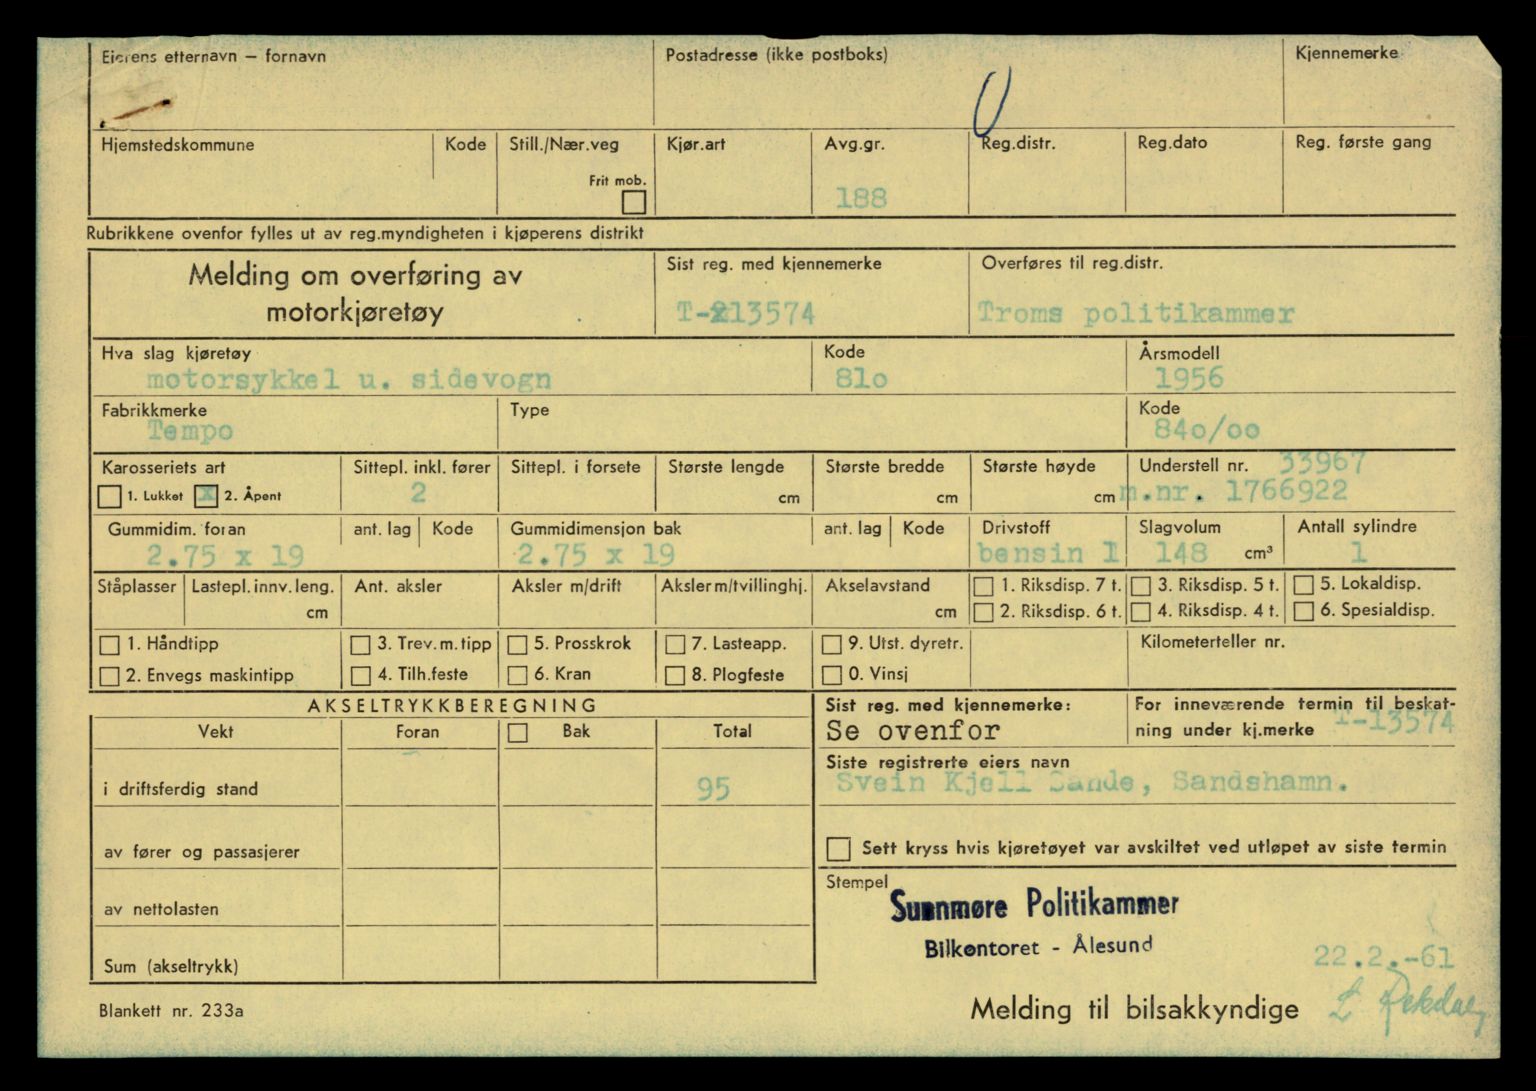 Eierens etternavn – fornavn Postadresse (ikke postboks) Kjennemerke
Hjemstedskommune Kode Still./Nær.veg Kjør.art Avg.gr. Reg.distr. Reg.dato Reg. første gang
Frit mob.
188
Rubrikkene ovenfor fylles ut av reg.myndigheten i kjøperens distrikt
Melding om overføring av Sist reg. med kjennemerke Overføres til reg.distr.
motorkjøretøy T-13574 Troms politikammer
Hva slag kjøretøy Kode Årsmodell
motorsykkel u. sidevogn 81o 1956
Fabrikkmerke Type Kode
Tempo 84o/oo
Karosseriets art Sittepl. inkl. fører Sittepl. i forsete Største lengde Største bredde Største høyde Understell nr. 33967
1. Lukket x 2. Åpent 2 cm cm cm m.nr. 1766922
Gummidim. foran ant. lag Kode Gummidimensjon bak ant. lag Kode Drivstoff Slagvolum Antall sylindre
2.75 x 19 2.75 x 19 bensin 1 148 cm³ 1
Ståplasser Lastepl. innv. leng. Ant. aksler Aksler m/drift Aksler m/tvillinghj. Akselavstand 1. Riksdisp. 7 t. 3. Riksdisp. 5 t. 5. Lokaldisp.
cm cm 2. Riksdisp. 6 t. 4. Riksdisp. 4 t. 6. Spesialdisp.
1. Håndtipp 3. Trev. m. tipp 5. Prosskrok 7. Lasteapp. 9. Utst. dyretr. Kilometerteller nr.
2. Envegs maskintipp 4. Tilh.feste 6. Kran 8. Plogfeste 0. Vinsj
AKSELTRYKKBEREGNING Sist reg. med kjennemerke: For inneværende termin til beskat-
Vekt Foran Bak Total Se ovenfor ning under kj.merke T-13574
Siste registrerte eiers navn
i driftsferdig stand 95 Svein Kjell Sande, Sandshamn.
av fører og passasjerer Sett kryss hvis kjøretøyet var avskiltet ved utløpet av siste termin
Stempel
av nettolasten Sunnmøre Politikammer
Bilkontoret - Ålesund
22.2.-61
Sum (akseltrykk)
Blankett nr. 233a Melding til bilsakkyndige